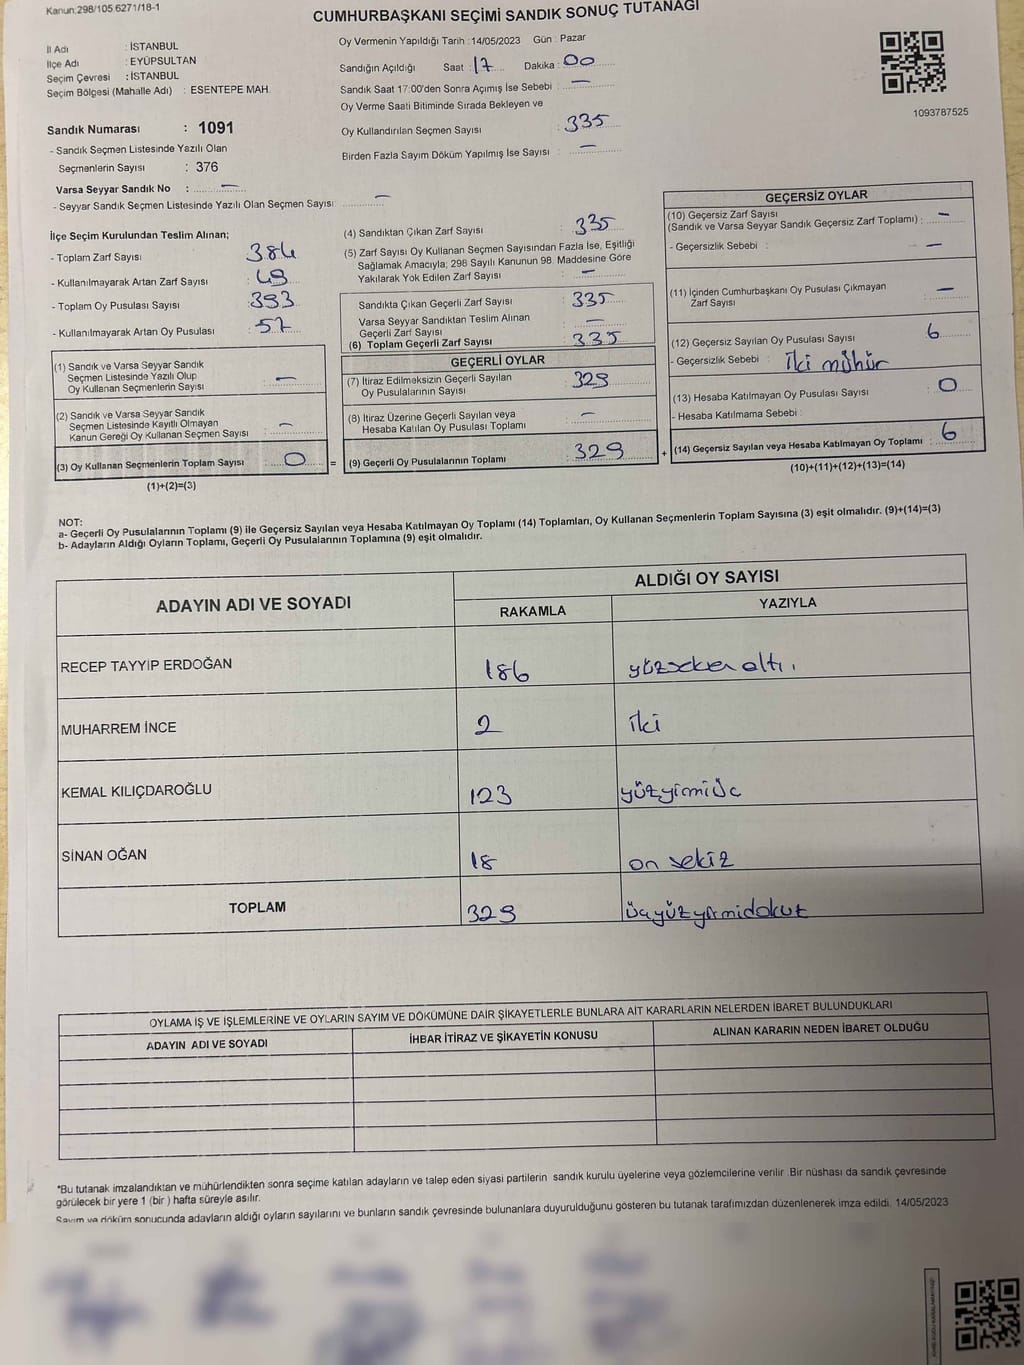 Kanun:298/105 6271/18-1
CUMHURBAŞKANI SEÇİMİ SANDIK SONUÇ TUTANAĞI
İl Adı : İSTANBUL
İlçe Adı : EYÜPSULTAN
Seçim Çevresi : İSTANBUL
Seçim Bölgesi (Mahalle Adı) : ESENTEPE MAH.
Oy Vermenin Yapıldığı Tarih :14/05/2023 Gün : Pazar
Sandığın Açıldığı Saat : 17 Dakika : 00
Sandık Saat 17:00'den Sonra Açımış İse Sebebi : —
Oy Verme Saati Bitiminde Sırada Bekleyen ve
Oy Kullandırılan Seçmen Sayısı : 335
Birden Fazla Sayım Döküm Yapılmış İse Sayısı : —
1093787525
Sandık Numarası : 1091
- Sandık Seçmen Listesinde Yazılı Olan
Seçmenlerin Sayısı : 376
Varsa Seyyar Sandık No : —
- Seyyar Sandık Seçmen Listesinde Yazılı Olan Seçmen Sayısı: —
İlçe Seçim Kurulundan Teslim Alınan;
- Toplam Zarf Sayısı : 384
- Kullanılmayarak Artan Zarf Sayısı : 49
- Toplam Oy Pusulası Sayısı : 393
- Kullanılmayarak Artan Oy Pusulası : 57
(1) Sandık ve Varsa Seyyar Sandık
Seçmen Listesinde Yazılı Olup
Oy Kullanan Seçmenlerin Sayısı : —
(2) Sandık ve Varsa Seyyar Sandık
Seçmen Listesinde Kayıtlı Olmayan
Kanun Gereği Oy Kullanan Seçmen Sayısı : —
(3) Oy Kullanan Seçmenlerin Toplam Sayısı : 0 =
(1)+(2)=(3)
(4) Sandıktan Çıkan Zarf Sayısı : 335
(5) Zarf Sayısı Oy Kullanan Seçmen Sayısından Fazla İse, Eşitliği
Sağlamak Amacıyla; 298 Sayılı Kanunun 98. Maddesine Göre
Yakılarak Yok Edilen Zarf Sayısı : —
Sandıkta Çıkan Geçerli Zarf Sayısı : 335
Varsa Seyyar Sandıktan Teslim Alınan
Geçerli Zarf Sayısı : —
(6) Toplam Geçerli Zarf Sayısı : 335
GEÇERLİ OYLAR
(7) İtiraz Edilmeksizin Geçerli Sayılan
Oy Pusulalarının Sayısı : 329
(8) İtiraz Üzerine Geçerli Sayılan veya
Hesaba Katılan Oy Pusulası Toplamı : —
(9) Geçerli Oy Pusulalarının Toplamı : 329 +
GEÇERSİZ OYLAR
(10) Geçersiz Zarf Sayısı
(Sandık ve Varsa Seyyar Sandık Geçersiz Zarf Toplamı) : —
- Geçersizlik Sebebi : —
(11) İçinden Cumhurbaşkanı Oy Pusulası Çıkmayan
Zarf Sayısı : —
(12) Geçersiz Sayılan Oy Pusulası Sayısı : 6
- Geçersizlik Sebebi : iki mühür
(13) Hesaba Katılmayan Oy Pusulası Sayısı : 0
- Hesaba Katılmama Sebebi :
(14) Geçersiz Sayılan veya Hesaba Katılmayan Oy Toplamı : 6
(10)+(11)+(12)+(13)=(14)
NOT:
a- Geçerli Oy Pusulalarının Toplamı (9) ile Geçersiz Sayılan veya Hesaba Katılmayan Oy Toplamı (14) Toplamları, Oy Kullanan Seçmenlerin Toplam Sayısına (3) eşit olmalıdır. (9)+(14)=(3)
b- Adayların Aldığı Oyların Toplamı, Geçerli Oy Pusulalarının Toplamına (9) eşit olmalıdır.
ADAYIN ADI VE SOYADI
ALDIĞI OY SAYISI
RAKAMLA YAZIYLA
RECEP TAYYİP ERDOĞAN 186 yüzseksen altı.
MUHARREM İNCE 2 iki
KEMAL KILIÇDAROĞLU 123 yüzyirmiüç
SİNAN OĞAN 18 on sekiz
TOPLAM 329 üçyüzyirmidokuz
OYLAMA İŞ VE İŞLEMLERİNE VE OYLARIN SAYIM VE DÖKÜMÜNE DAİR ŞİKAYETLERLE BUNLARA AİT KARARLARIN NELERDEN İBARET BULUNDUKLARI
ADAYIN ADI VE SOYADI İHBAR İTİRAZ VE ŞİKAYETİN KONUSU ALINAN KARARIN NEDEN İBARET OLDUĞU
*Bu tutanak imzalandıktan ve mühürlendikten sonra seçime katılan adayların ve talep eden siyasi partilerin sandık kurulu üyelerine veya gözlemcilerine verilir. Bir nüshası da sandık çevresinde
görülecek bir yere 1 (bir) hafta süreyle asılır.
Sayım ve döküm sonucunda adayların aldığı oyların sayılarını ve bunların sandık çevresinde bulunanlara duyurulduğunu gösteren bu tutanak tarafımızdan düzenlenerek imza edildi. 14/05/2023